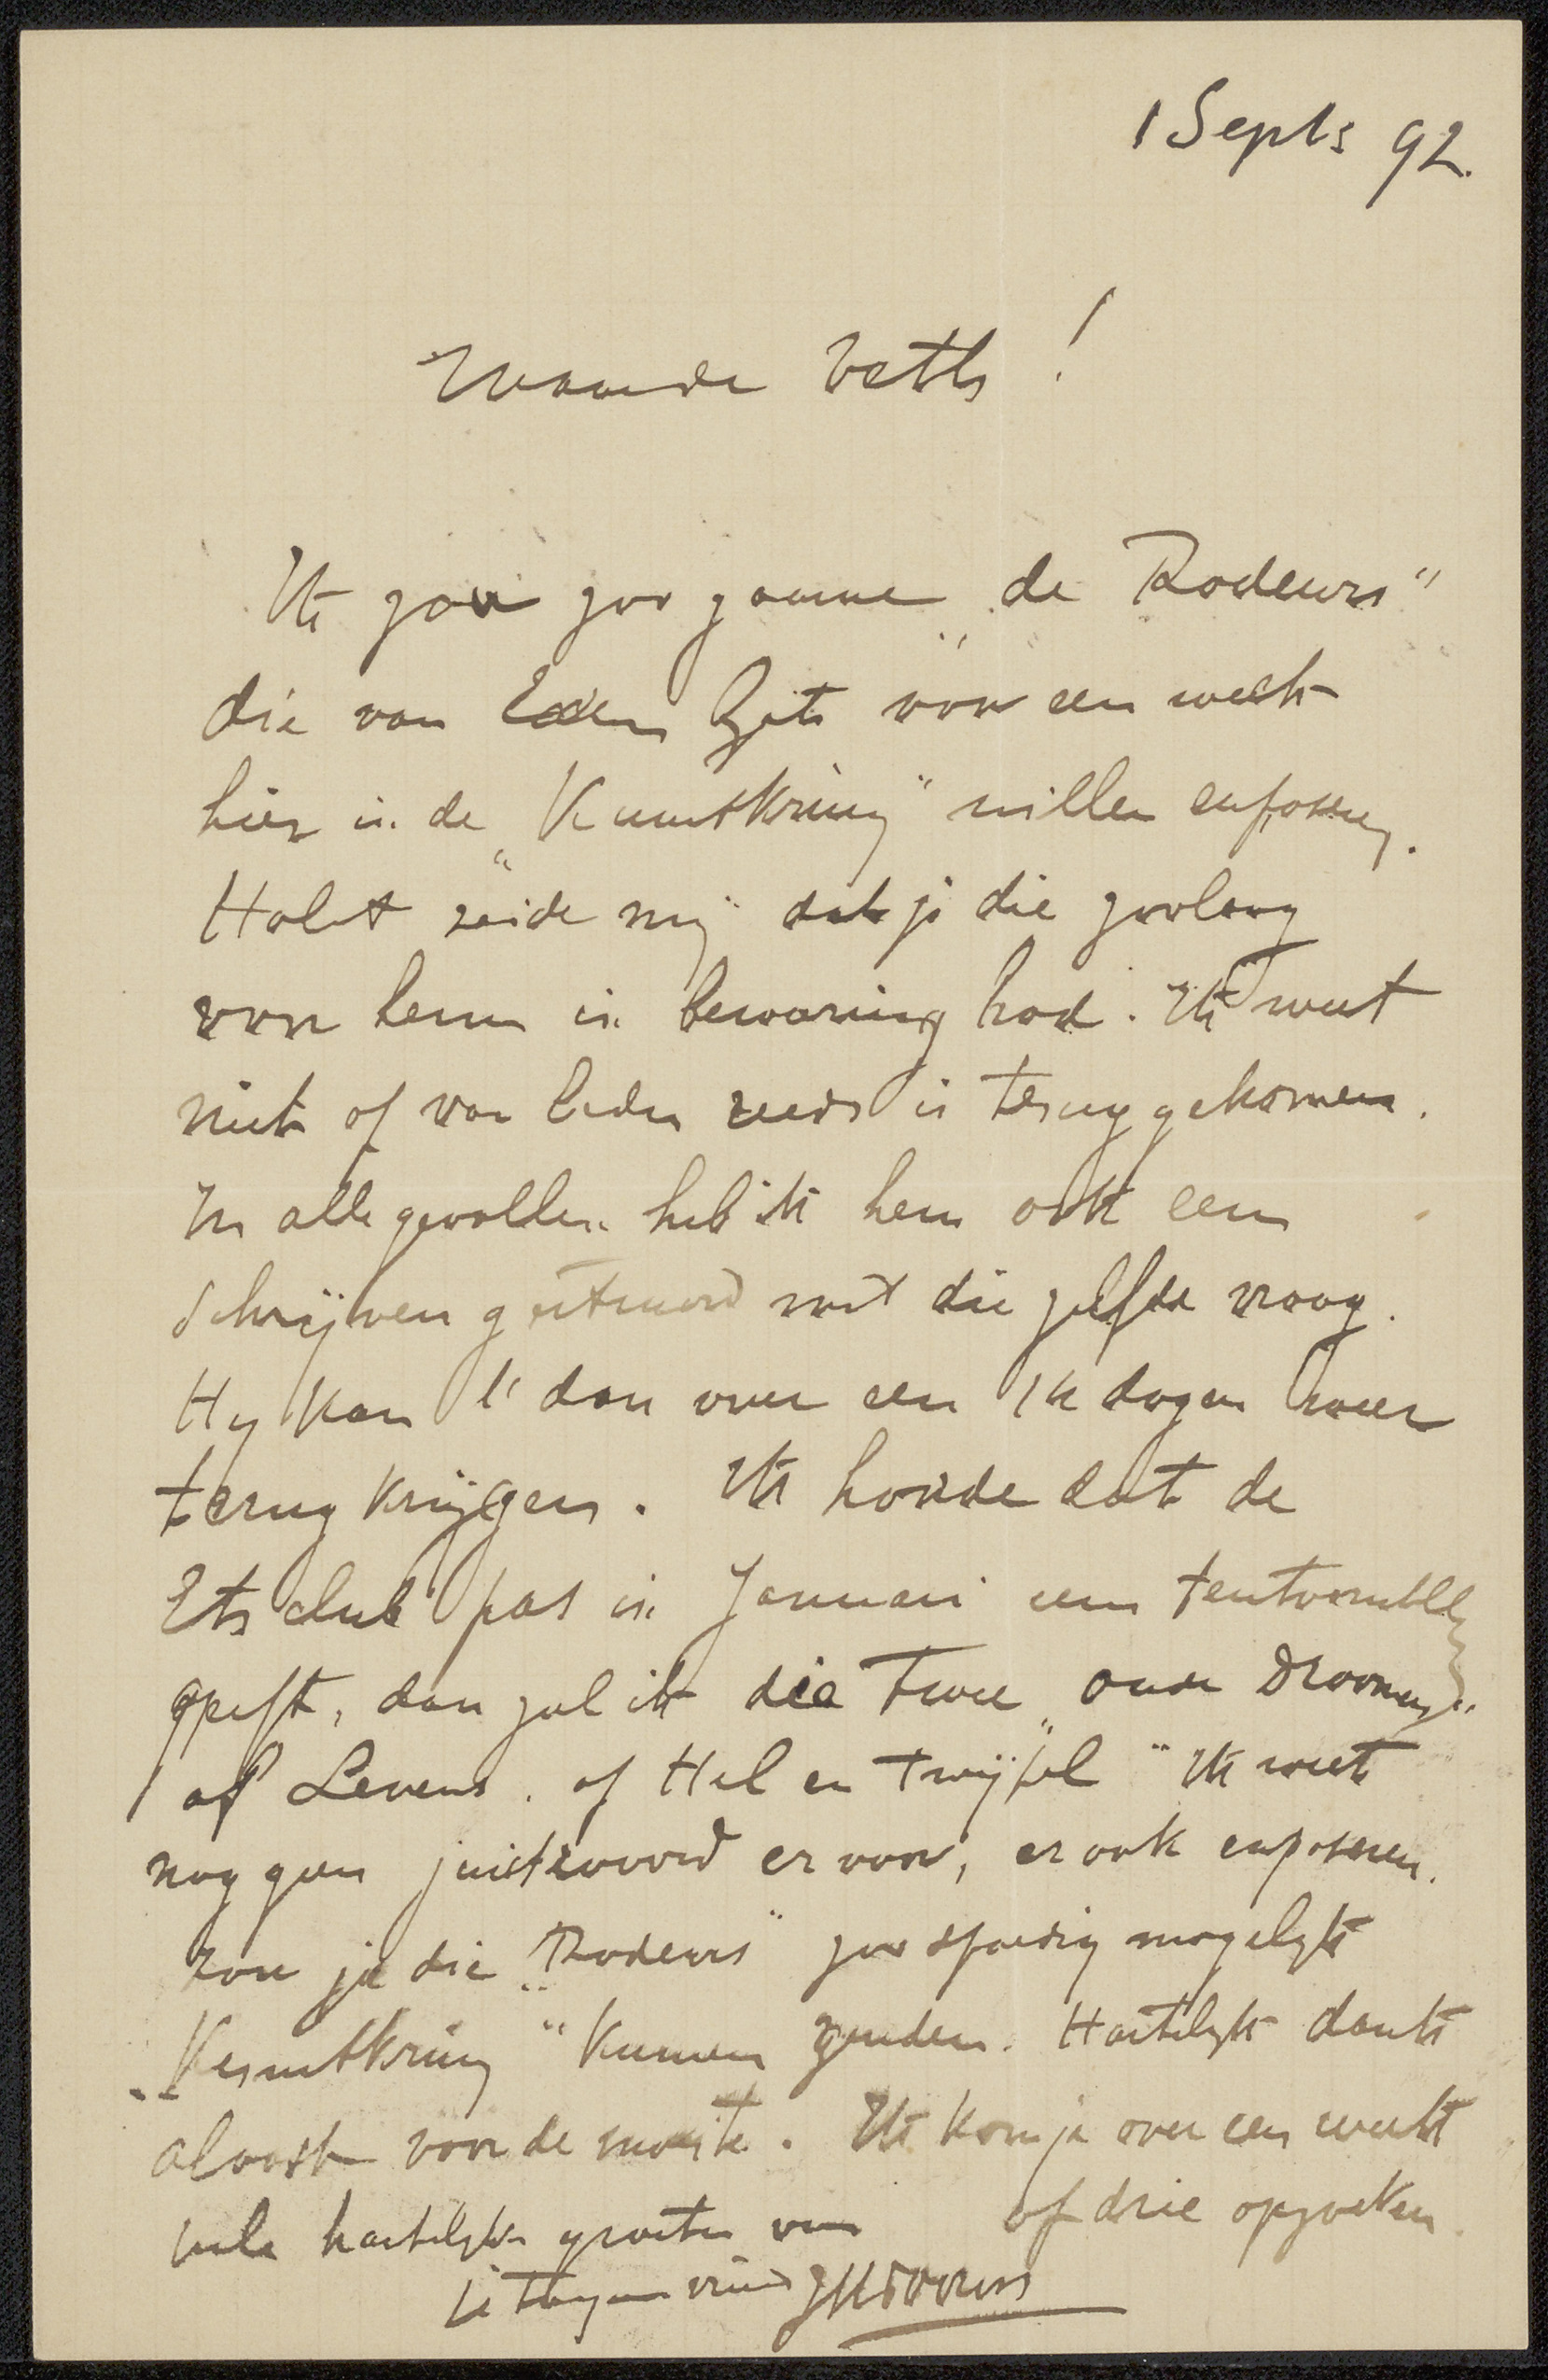 1 Septs 92.
Waarde Veth!
Ik zou zoo gaarne „de Rodeurs"
die van Eeden hyt voor een week
hier in de „Kunstkring" willen exposeren.
Holst zeide mij dat je die zoolang
voor hem in bewaring had. Ik weet
niet of van Eeden reeds is terug gekomen.
In alle gevallen heb ik hem ook een
schrijven gestuurd met die zelfde vraag.
Hy kan 't dan over een 14 dagen weer
terug krijgen. Ik hoorde dat de
Etsclub pas in Januari een tentoonstelling
geeft, dan zal ik die twee „oude Droomen"
of Levens. of Hel en Twijfel" Ik weet
nog geen juist woord er voor, er ook exposeren.
Zou je die „Rodeurs" zoo spoedig mogelyk
„Kunstkring" kunnen zenden. Hartelyk dank
alvast voor de moeite. Ik kom je over een week
of drie opzoeken.
vele hartelyke groeten van
je toegen vriend JThToorop